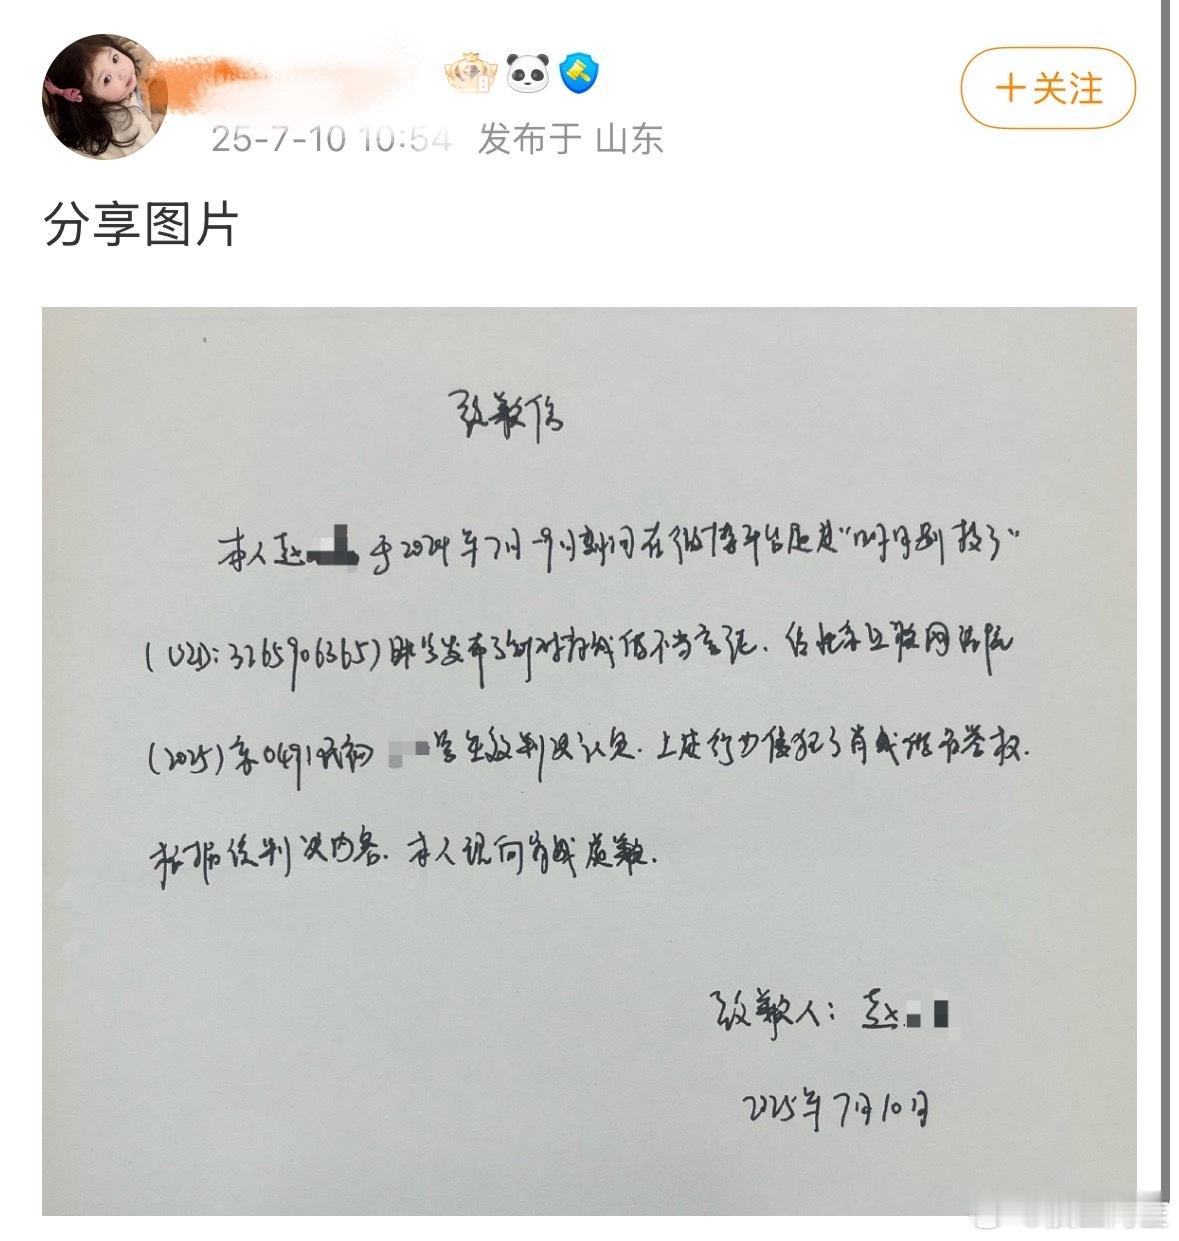 25-7-10 10:54 发布于 山东
+关注
分享图片
致歉信
本人赵 于2024年7月-9月期间在微博平台通过“ 别 了”
(UID:3265906365)账号发布了针对肖战的不当言论,经北京互联网法院
(2025)京0491民初 号生效判决认定,上述行为侵犯了肖战的名誉权.
根据该判决内容.本人现向肖战道歉.
致歉人:赵
2025年7月10日